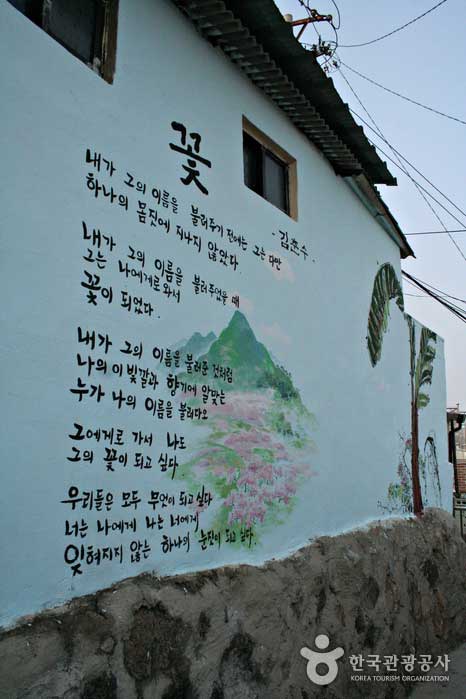 꽃
-김춘수-
내가 그의 이름을 불러주기 전에는 그는 다만
하나의 몸짓에 지나지 않았다.
내가 그의 이름을 불러주었을 때
그는 나에게로 와서
꽃이 되었다.
내가 그의 이름을 불러준 것처럼
나의 이 빛깔과 향기에 알맞는
누가 나의 이름을 불러다오
그에게로 가서 나도
그의 꽃이 되고 싶다
우리들은 모두 무엇이 되고 싶다
너는 나에게 나는 너에게
잊혀지지 않는 하나의 눈짓이 되고 싶다.
한국관광공사
KOREA TOURISM ORGANIZATION